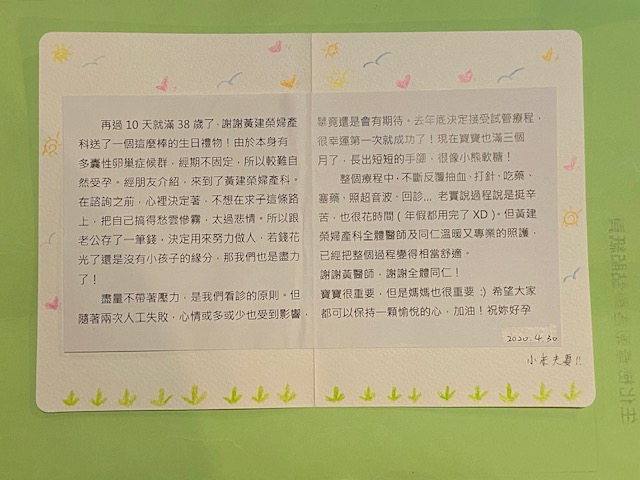 再過 10 天就滿 38 歲了，謝謝黃建榮婦產
科送了一個這麼棒的生日禮物！由於本身有
多囊性卵巢症候群，經期不固定，所以較難自
然受孕。經朋友介紹，來到了黃建榮婦產科。
在諮詢之前，心裡決定著，不想在求子這條路
上，把自己搞得愁雲慘霧，太過悲情。所以跟
老公存了一筆錢，決定用來努力做人，若錢花
光了還是沒有小孩子的緣分，那我們也是盡力
了！
盡量不帶著壓力，是我們看診的原則。但
隨著兩次人工失敗，心情或多或少也受到影響，
畢竟還是會有期待。去年底決定接受試管療程，
很幸運第一次就成功了！現在寶寶也滿三個
月了，長出短短的手腳，很像小熊軟糖！
整個療程中，不斷反覆抽血、打針、吃藥、
塞藥、照超音波、回診... 老實說過程是挺辛
苦，也很花時間（年假都用完了 XD）。但黃建
榮婦產科全體醫師及同仁溫暖又專業的照護，
已經把整個過程變得相當舒適。
謝謝黃醫師，謝謝全體同仁！
寶寶很重要，但是媽媽也很重要 :) 希望大家
都可以保持一顆愉悅的心，加油！祝妳好孕
2020.4.30
小米夫妻!!